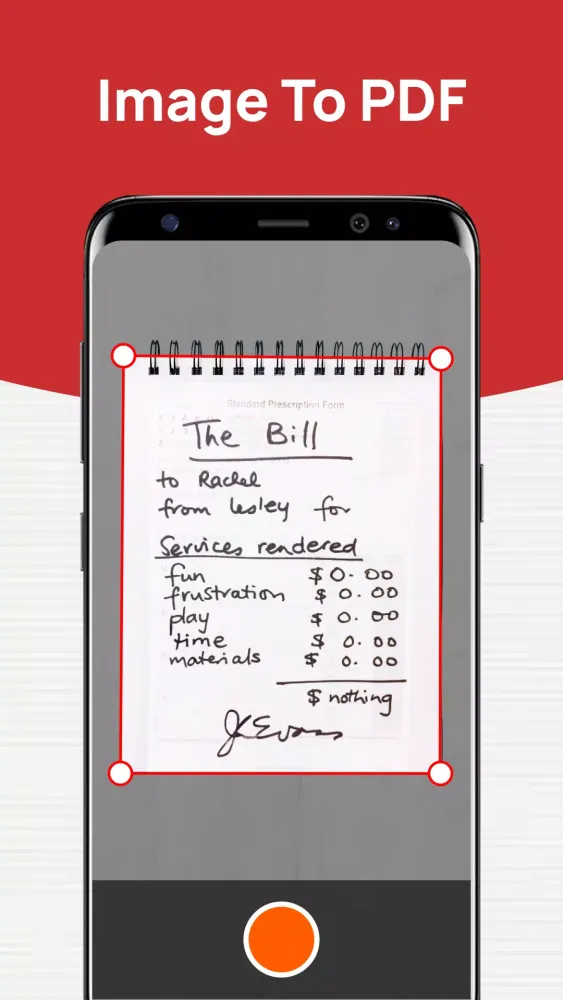 Image To PDF
Standard Prescription Form
The Bill
to Rachel
from Lesley for
Services rendered
fun $0.00
frustration $0.00
play $0.00
time $0.00
materials $0.00
$ nothing
JKEvans